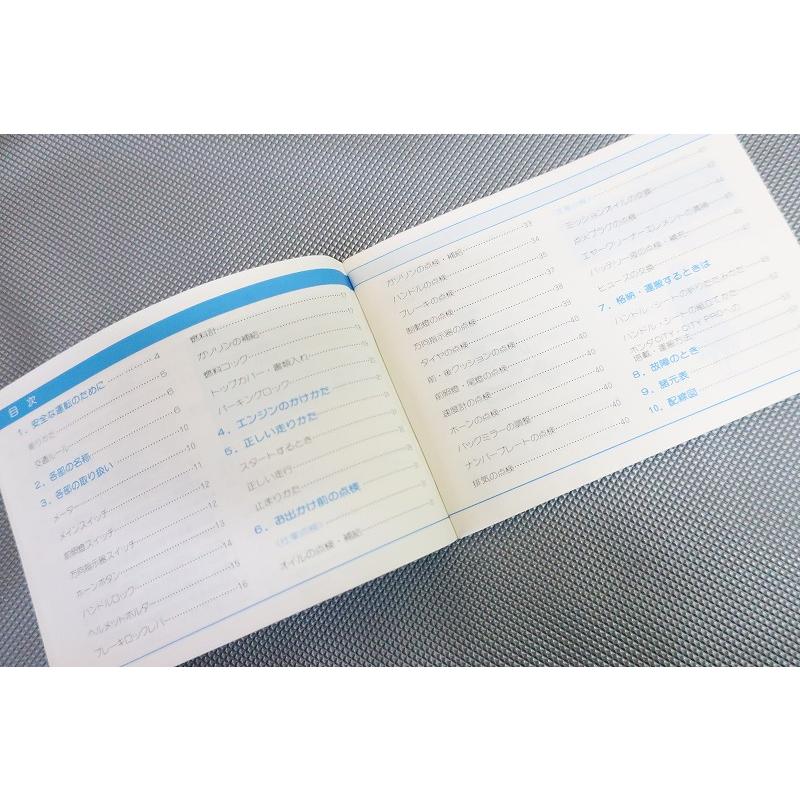 目次
1. 安全な運転のために 4
乗りかた 5
交通ルール 6
2. 各部の名称 6
3. 各部の取り扱い 10
メーター 10
メインスイッチ 11
前照燈スイッチ 12
方向指示器スイッチ 12
ホーンボタン 13
ハンドルロック 14
ヘルメットホルダー 15
ブレーキロックレバー 16
燃料計
ガソリンの補給
燃料コック
トップカバー・書類入れ
パーキングロック
4. エンジンのかけかた
5. 正しい走りかた
スタートするとき
正しい走行
止まりかた
6. お出かけ前の点検
《仕業点検》
オイルの点検・補給
ガソリンの点検・補給 33
ハンドルの点検 34
ブレーキの点検 37
制動燈の点検 38
方向指示器の点検 39
タイヤの点検 40
前・後クッションの点検 40
前照燈・尾燈の点検 40
速度計の点検 40
ホーンの点検 40
バックミラーの調整 40
ナンバープレートの点検 40
排気の点検
ミッションオイルの交換
点火プラグの点検
エヤークリーナーエレメントの清掃
バッテリー液の点検・補充
ヒューズの交換
7. 格納・運搬するときは
ハンドル・シートの折りたたみかた
ハンドル・シートの組立てかた
ホンダCITY・CITY PROへの
搭載・運搬方法
8. 故障のとき
9. 諸元表
10. 配線図